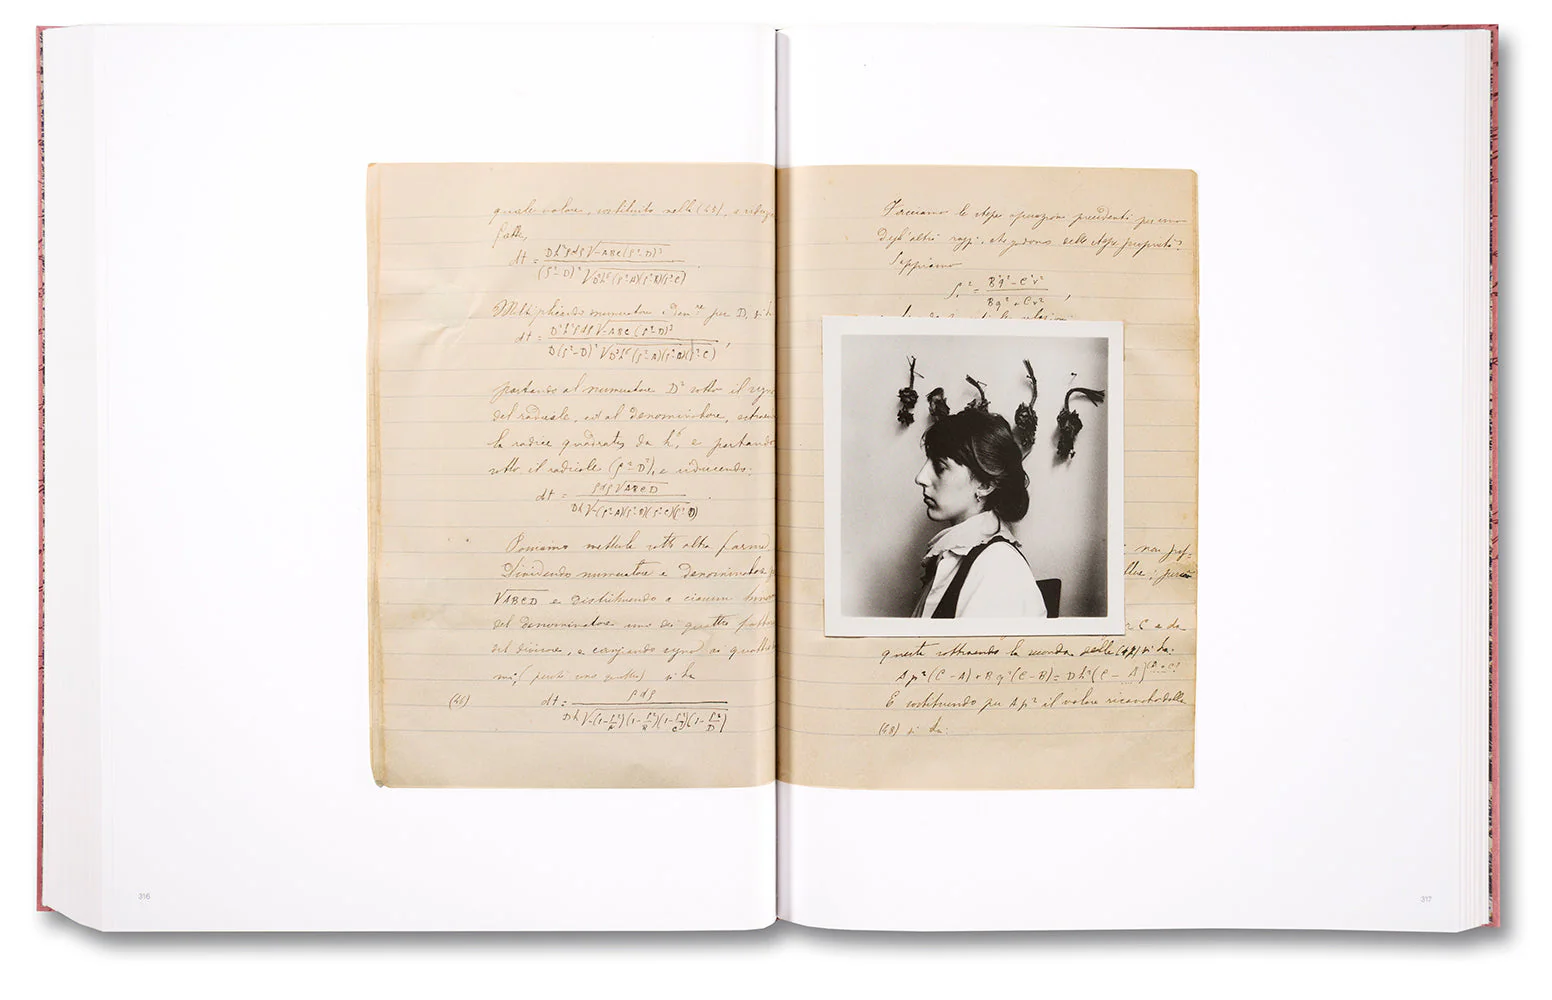 quale valore, sostituito nella (45), e riduzi
fatte,
dt = Dh²ρdρ√-ABC(ρ²-D)² / (ρ²-D)²√D²h⁶(ρ²-A)(ρ²-B)(ρ²-C)
Moltiplicando numeratore e den.re per D, si h
dt = D²h²ρdρ√-ABC(ρ²-D)² / D(ρ²-D)²√D²h⁶(ρ²-A)(ρ²-B)(ρ²-C) ,
portando al numeratore D² sotto il segno
del radicale, ed al denominatore, estraen
la radice quadrata da h⁶, e portando
sotto il radicale (ρ²-D)², e riducendo:
dt = ρdρ√ABCD / Dh√-(ρ²-A)(ρ²-B)(ρ²-C)(ρ²-D) .
Possiamo metterla sotto altra forma
Dividendo numeratore e denominatore p
√ABCD e distribuendo a ciascun
del denominatore uno dei quattro fattori
del divisore, e cangiando segno ai quattro
mi, (perciò una quatta) si ha
(46) dt = ρdρ / Dh√-(1-ρ²/A)(1-ρ²/B)(1-ρ²/C)(1-ρ²/D)
316
Facciamo le stesse operazioni precedenti per uno
degli altri raggi, che godono delle stesse proprietà.
Sappiamo
ρ₁² = B²q²-C²r² / Bq²+Cr² ,
C e da
queste sottraendo la seconda delle (48) si ha:
Ap²(C-A)+Bq²(C-B)=Dh²(C-
E sostituendo per Ap² il valore ricavato dalla
(48) si ha:
317